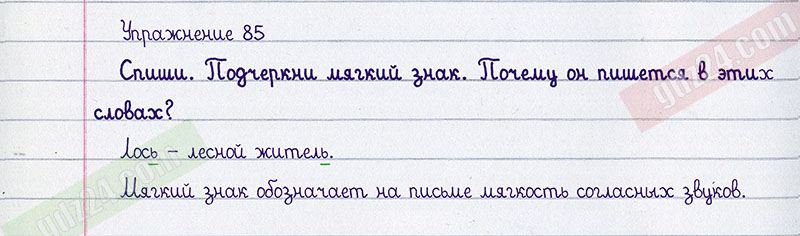 Упражнение 85
Спиши. Подчеркни мягкий знак. Почему он пишется в этих
словах?
Лось – лесной житель.
Мягкий знак обозначает на письме мягкость согласных звуков.
gdz24.com
gdz24.com